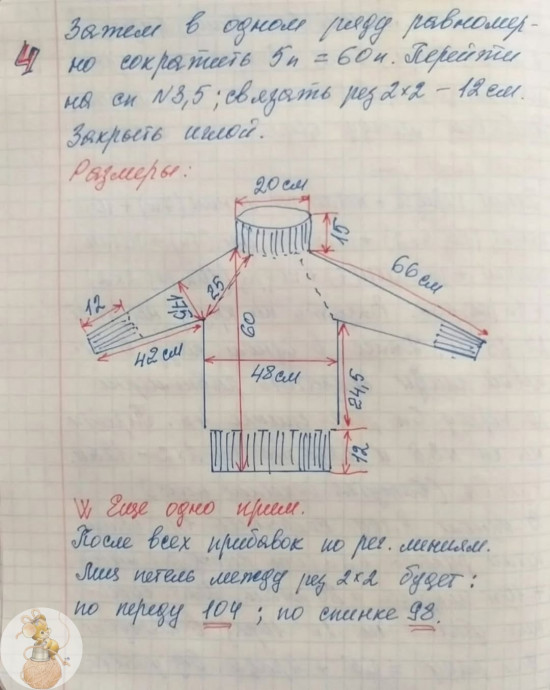 4
Затем в одном ряду равномер-
но сократить 5п = 60п. Перейти
на сп №3,5; связать рез 2×2 – 12 см.
Закрыть иглой.
Размеры:
20 см
15
66 см
12
17,5
25
42 см
60
48 см
24,5
12
W Еще одно прим.
После всех прибавок по рег. линиям.
Лиц петель между рез 2×2 будет:
по переду 104 ; по спинке 98.